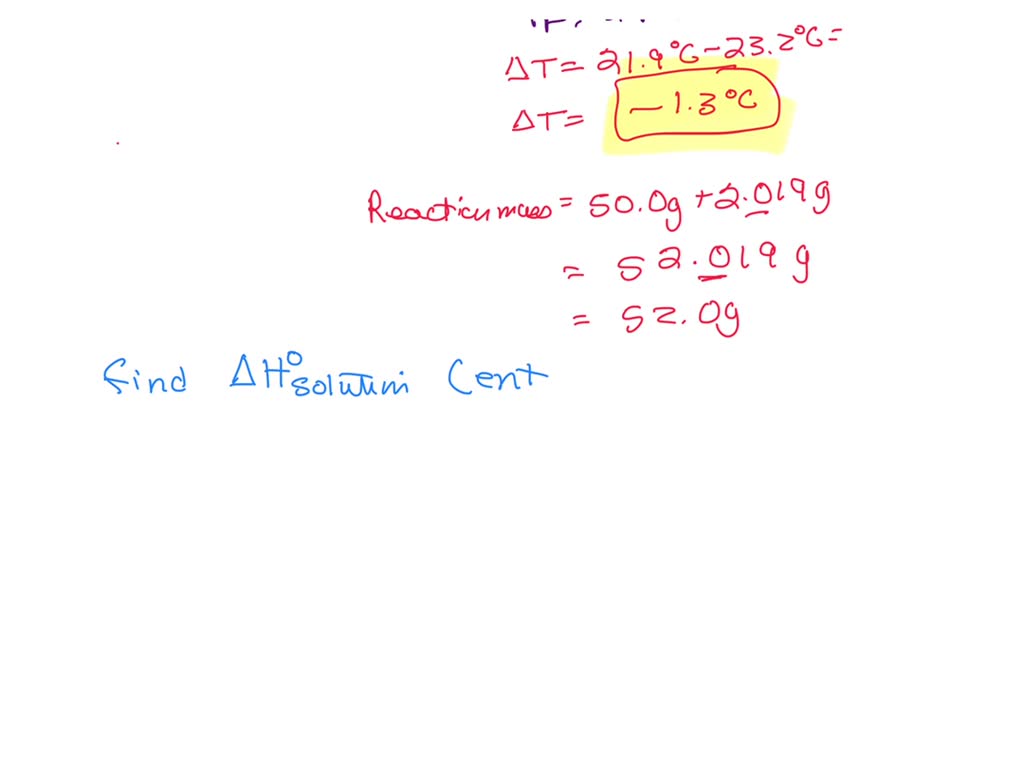 ΔT = 21.9°C - 23.2°C =
ΔT = -1.3°C
Reaction mass = 50.0g + 2.019g
= 52.019 g
= 52.0g
find ΔH°solution (ent